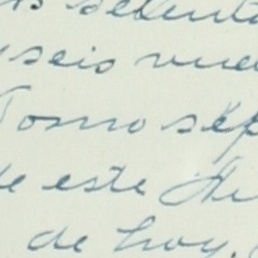 setenta
y seis nue
Tomo sép
de este
de hoy.